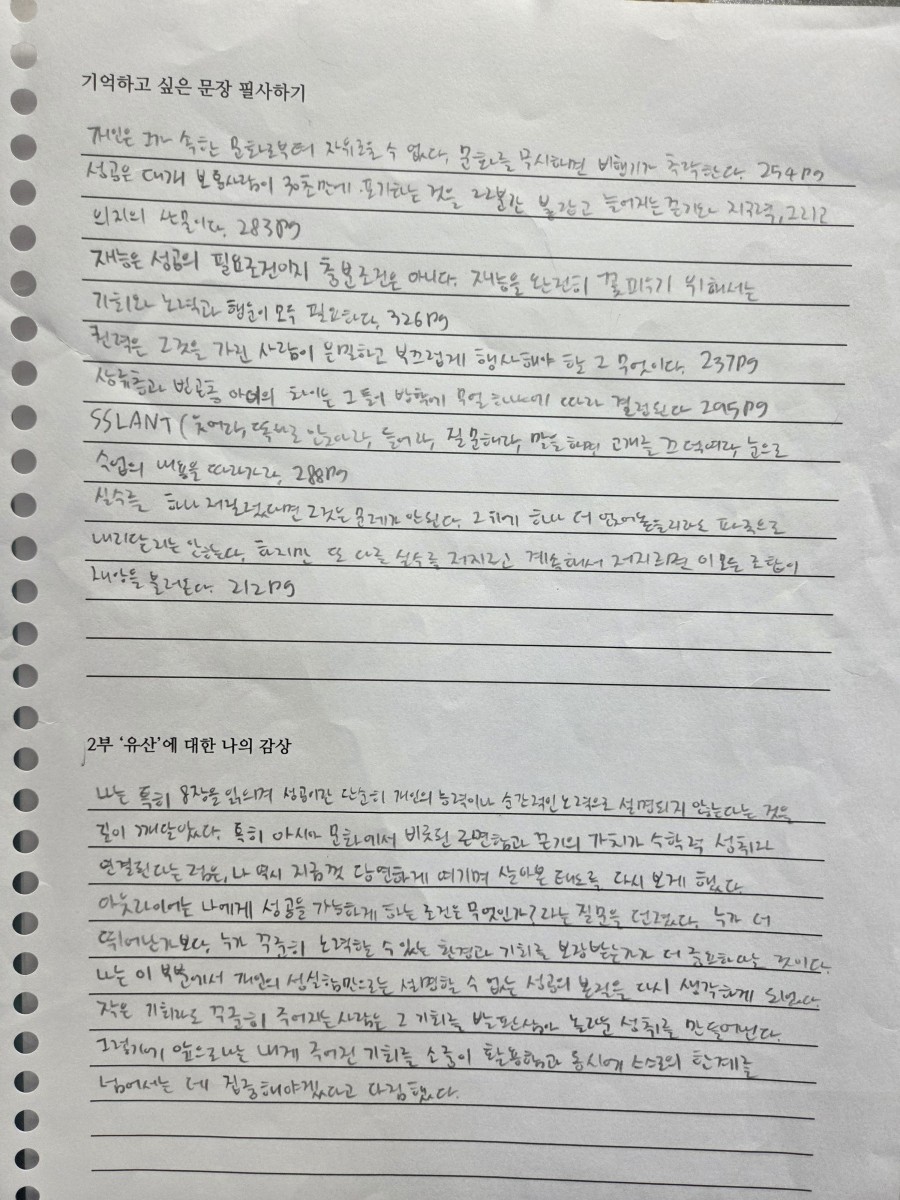 기억하고 싶은 문장 필사하기
개인은 그가 속한 문화로부터 자유로울 수 없다. 문화를 무시하면 비행기가 추락한다. 254pg
성공은 대개 보통사람이 30초만에 포기하는 것을 22분간 붙잡고 늘어지는 끈기와 지구력, 그리고
의지의 산물이다. 283pg
재능은 성공의 필요조건이지 충분조건은 아니다. 재능을 완전히 꽃피우기 위해서는
기회와 노력과 행운이 모두 필요하다. 326pg
권력은 그것을 가진 사람이 은밀하고 부끄럽게 행사해야 할 그 무엇이다. 237pg
상류층과 빈곤층 아이의 차이는 그들이 방학에 무얼 하냐에 따라 결정된다 295pg
SSLANT (웃어라, 똑바로 앉아라, 들어라, 질문해라, 말을 하면 고개를 끄덕여라, 눈으로
수업의 내용을 따라가라. 288pg
실수를 하나 저질렀다면 그것은 문제가 안된다. 그 위에 하나 더 얹어놓을지라도 파국으로
내리달리는 않는다. 하지만 또 다른 실수를 저지르고 계속해서 저지르면 이 모든 조합이
재앙을 불러온다. 212pg
2부 ‘유산’에 대한 나의 감상
나는 특히 8장을 읽으며 성공이란 단순히 개인의 능력이나 순간적인 노력으로 설명되지 않는다는 것을
깊이 깨달았다. 특히 아시아 문화에서 비롯된 근면함과 끈기의 가치가 수학적 성취와
연결된다는 점은, 나 역시 지금껏 당연하게 여기며 살아온 태도를 다시 보게 했다.
아웃라이어는 나에게 성공을 가능하게 하는 조건은 무엇인가? 라는 질문을 던졌다. 누가 더
뛰어난가보다, 누가 꾸준히 노력할 수 있는 환경과 기회를 보장받는가가 더 중요하다는 것이다.
나는 이 부분에서 개인의 성실함만으로는 설명할 수 없는 성공의 본질을 다시 생각하게 되었다.
작은 기회라도 꾸준히 주어지는 사람은 그 기회를 발판삼아 놀라운 성취를 만들어낸다.
그렇기에 앞으로 나는 내게 주어진 기회를 소중히 활용함과 동시에 스스로의 한계를
넘어서는 데 집중해야겠다고 다짐했다.